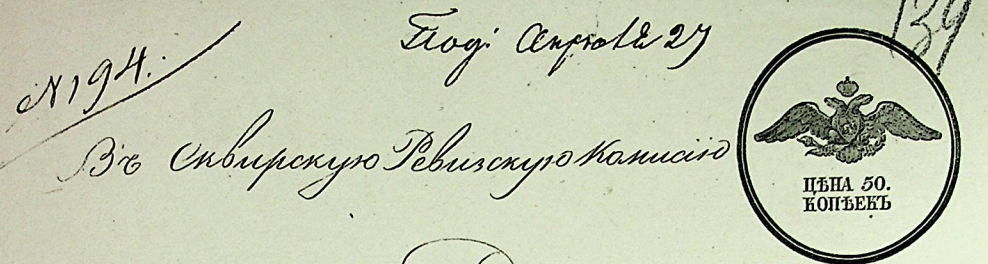 139
Под: Апреля 27
№ 194.
Въ Сквирскую Ревизскую Комисію
ЦѢНА 50.
КОПѢЕКЪ